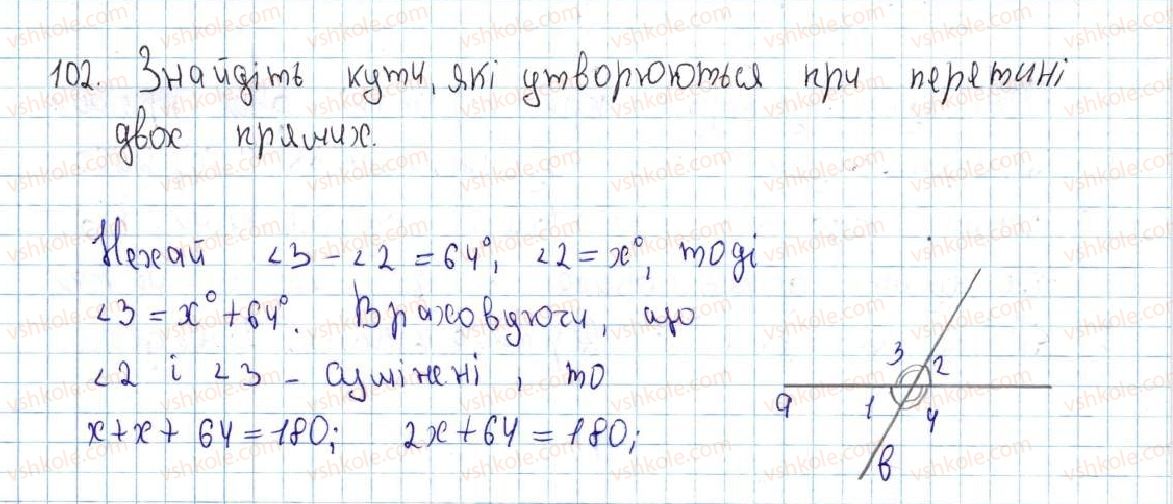 102. Знайдіть кути, які утворюються при перетині
двох прямих.
Нехай ∠3 - ∠2 = 64°, ∠2 = x°, тоді
∠3 = x° + 64°. Враховуючи, що
∠2 і ∠3 - суміжні, то
x + x + 64 = 180; 2x + 64 = 180;
3 2
a 1 4
b
vshkole.com